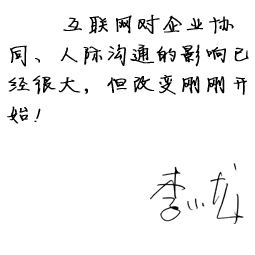 互联网对企业协
同、人际沟通的影响已
经很大，但改变刚刚开
始！
李小龙